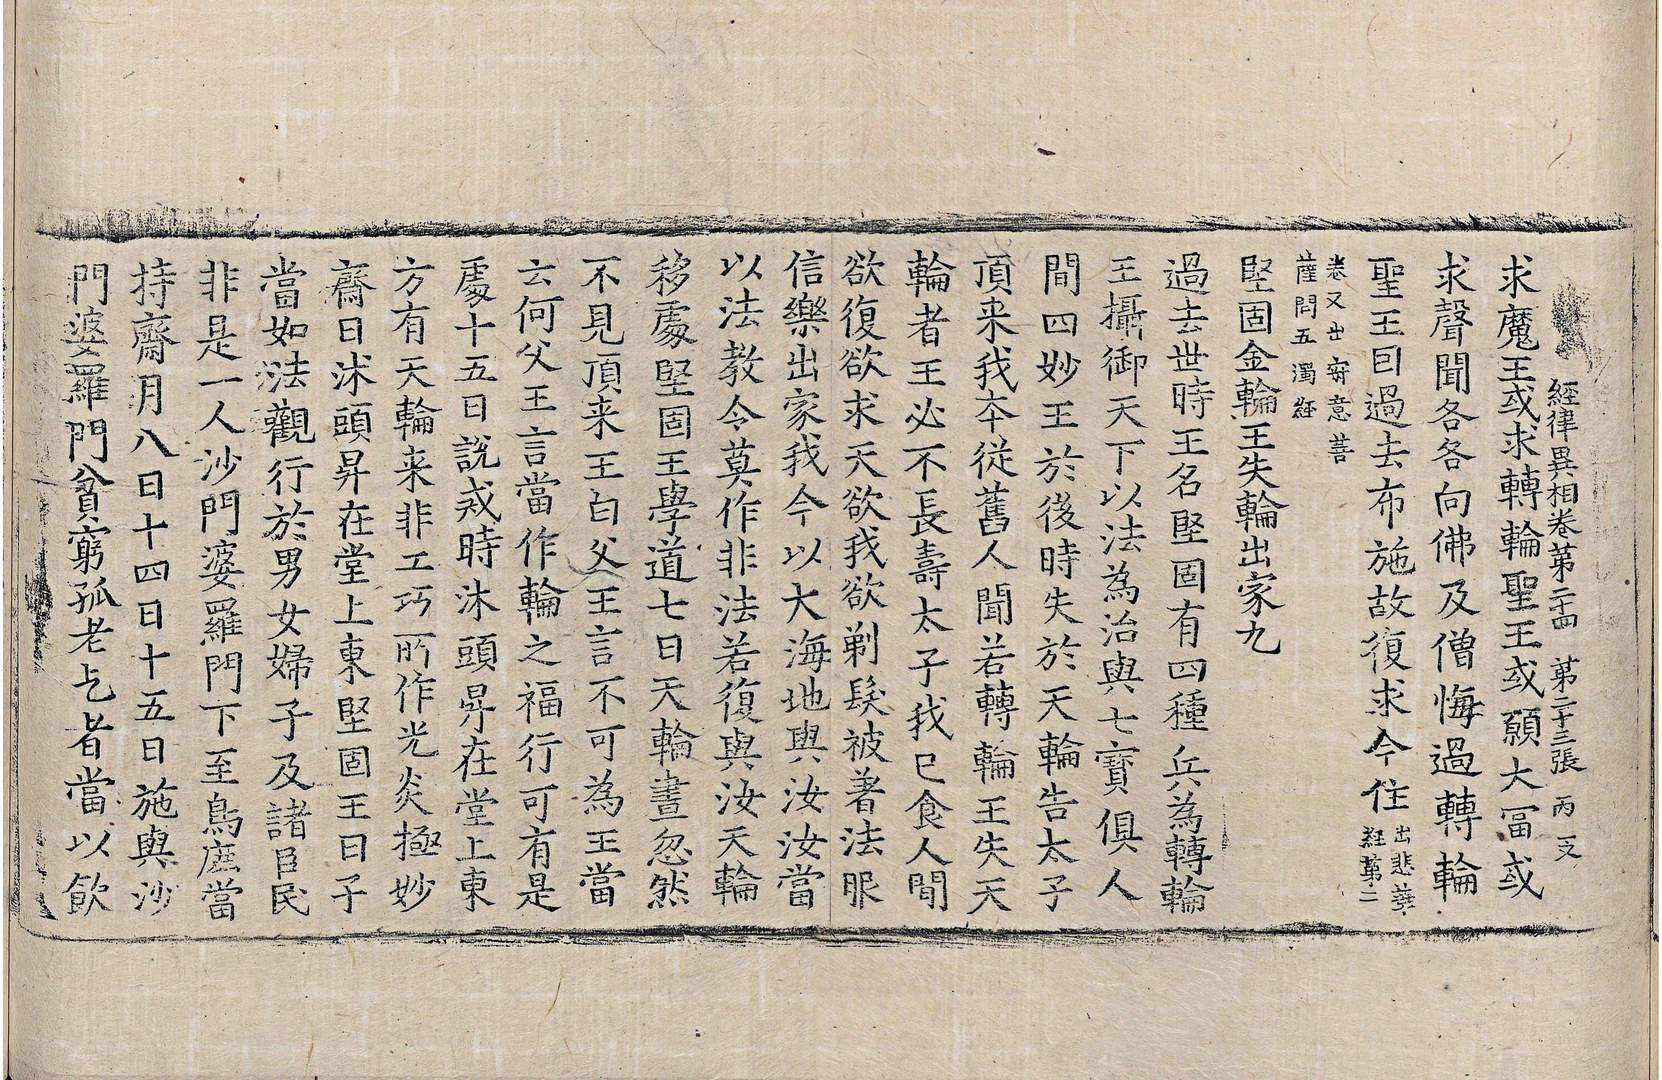 經律異相卷第二十四 第二十三張 丙 支
求魔王或求轉輪聖王或願大富或
求聲聞各各向佛及僧悔過轉輪
聖王曰過去布施故復求今住出悲華經第二
卷又出寄意菩
薩問五濁經
堅固金輪王失輪出家九
過去世時王名堅固有四種兵為轉輪
王攝御天下以法為治與七寶俱人
間四妙王於後時失於天輪告太子
頂来我夲從舊人聞若轉輪王失天
輪者王必不長壽太子我已食人間
欲復欲求天欲我欲剃髮被著法服
信樂出家我今以大海地與汝汝當
以法教令莫作非法若復與汝天輪
移處堅固王學道七日天輪晝忽然
不見頂来王白父王言不可為王當
云何父王言當作輪之福行可有是
處十五日說戒時沐頭昇在堂上東
方有天輪来非工巧所作光炎極妙
齋日沐頭昇在堂上東堅固王曰子
當如法觀行於男女婦子及諸臣民
非是一人沙門婆羅門下至鳥鹿當
持齋月八日十四日十五日施與沙
門婆羅門貧窮孤老乞者當以飲